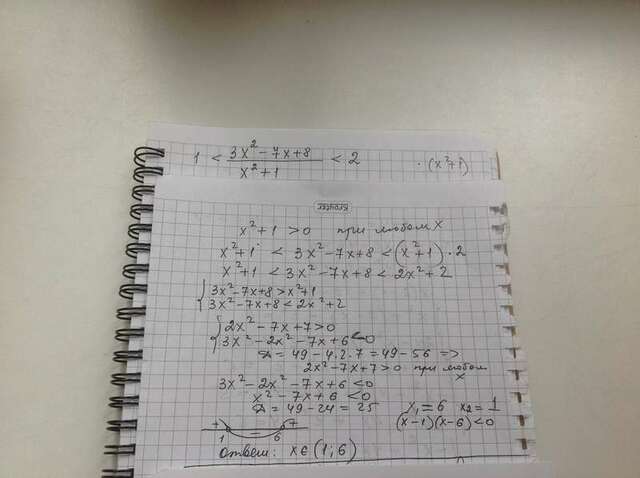 1 < (3x² - 7x + 8)/(x² + 1) < 2 · (x²+1)
x² + 1 > 0 при любом x
x² + 1 < 3x² - 7x + 8 < (x² + 1) · 2
x² + 1 < 3x² - 7x + 8 < 2x² + 2
{ 3x² - 7x + 8 > x² + 1
3x² - 7x + 8 < 2x² + 2
{ 2x² - 7x + 7 > 0
3x² - 2x² - 7x + 6 < 0
Д = 49 - 4.2.7 = 49 - 56 =>
2x² - 7x + 7 > 0 при любом x
3x² - 2x² - 7x + 6 < 0
x² - 7x + 6 < 0
Д = 49 - 24 = 25 x₁ = 6 x₂ = 1
(x - 1)(x - 6) < 0
+ +
1 6
Ответ: x ∈ (1; 6)